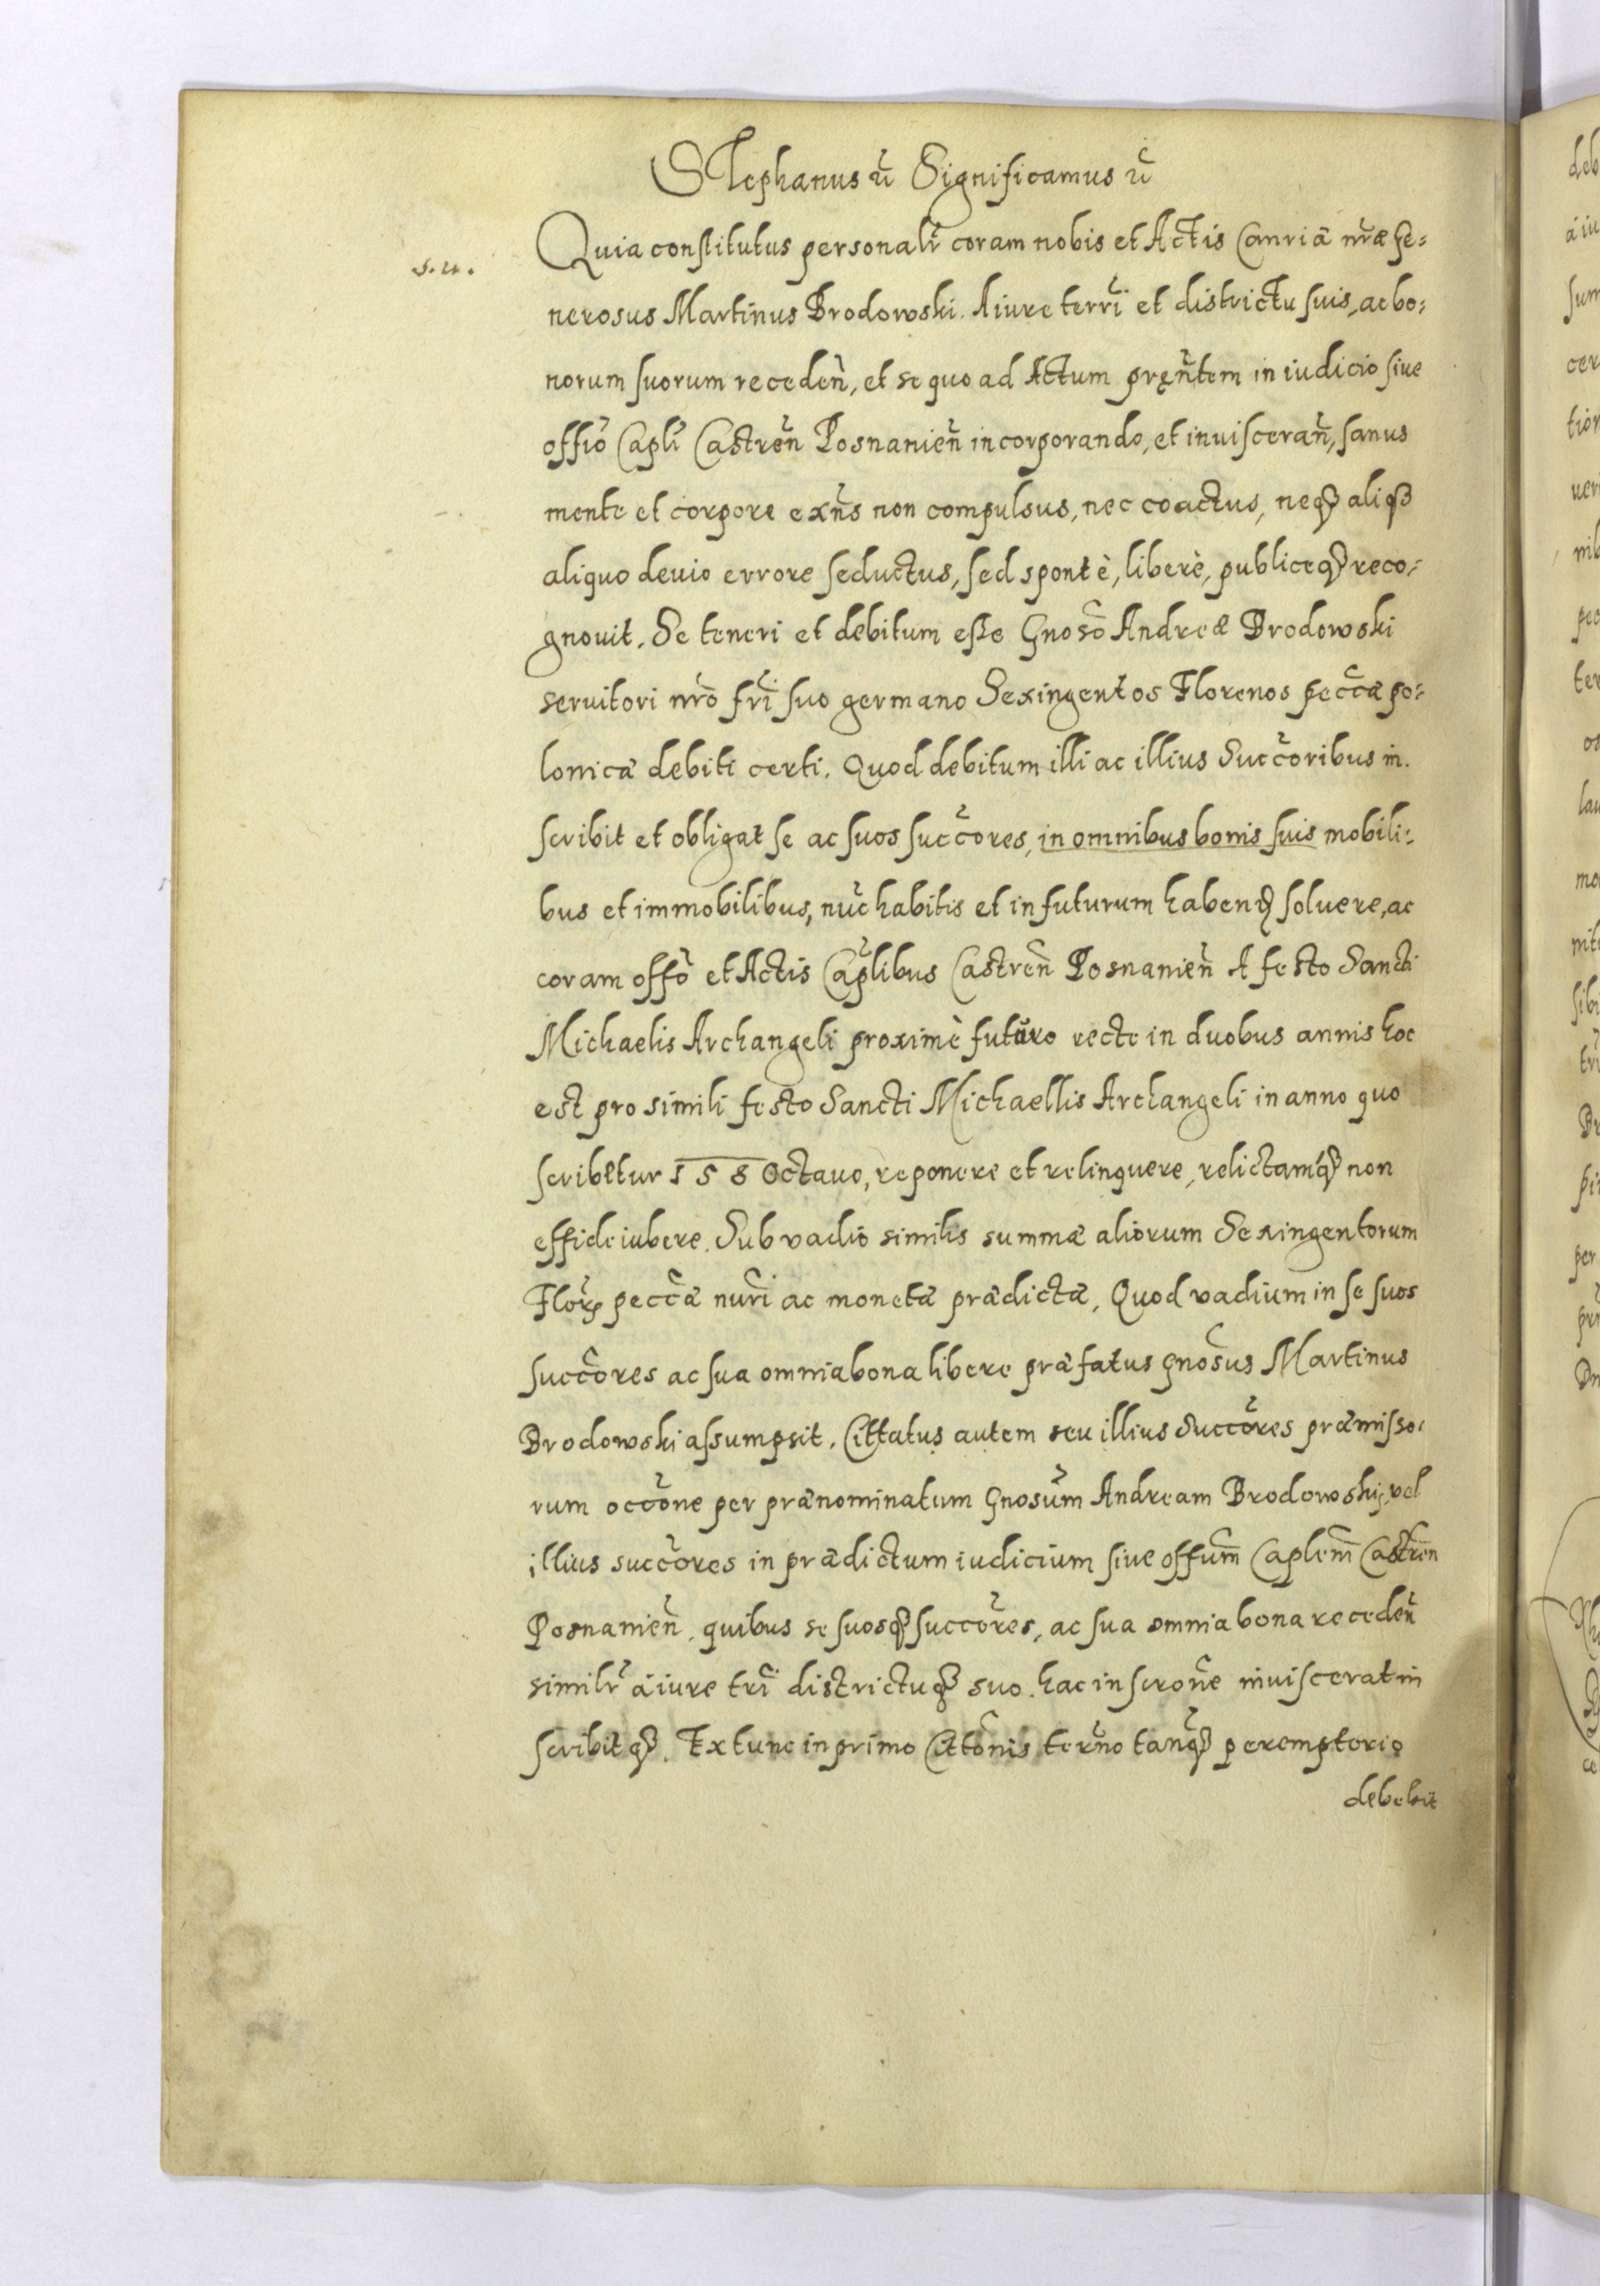 STephanus etc̃ Significamus etc̃
s. n.
Quia constitutus personalr̃ coram nobis et Actis Canriæ nr̃æ Ge-
nerosus Martinus Brodowski. A iure terr̃i et districtu suis, ac bo-
norum suorum recedeñ, et se quo ad Actum pręñtem in iudicio siue
offi͂o Capl͂i Castreñ Posnanieñ incorporando, et inuisceran͂, sanus
mente et corpore exñs non compulsus, nec coactus, neq3 aliq3
aliquo deuio errore seductus, sed spontè, liberè, publiceq3 reco-
gnouit. Se teneri et debitum esse Gnoso͂ Andreæ Brodowski
seruitori nr͂o fr͂i suo germano Sexingentos Florenos pecc͂æ po-
lonicæ debiti certi. Quod debitum illi ac illius Succ͂oribus in-
scribit et obligat se ac suos succ͂ores, in omnibus bonis suis mobili-
bus et immobilibus, nu͂c habitis et in futurum habend3 soluere, ac
coram off͂o et Actis Cap͂libus Castreñ Posnanieñ A festo Sancti
Michaelis Archangeli proximè futuro recte in duobus annis hoc
est pro simili festo Sancti Michaellis Archangeli in anno quo
scribetur 158 Octauo, reponere et relinquere, relictamq3 non
effideiubere. Sub vadio similis summæ aliorum Sexingentorum
Flor͂ pecc͂æ nur͂i ac monetæ prædictæ, Quod vadium in se suos
succ͂ores ac sua omnia bona libere præfatus Gnos͂us Martinus
Brodowski assumpsit. Cittatus autem seu illius Succ͂ores præmisso-
rum occ͂one per prænominatum Gnosu͂m Andream Brodowski, vel
illius succ͂ores in prædictum iudicium siue offu͂m Caplem͂ Castreñ
Posnanieñ, quibus se suosq3 succ͂ores, ac sua omnia bona recedeñ
similr͂ à iure tr͂i districtuq3 suo. hac inscron͂e inuiscerat in
scribitq3. Ex tunc in primo Citto͂nis ter͂no tanq͂3 peremptorio
debebit